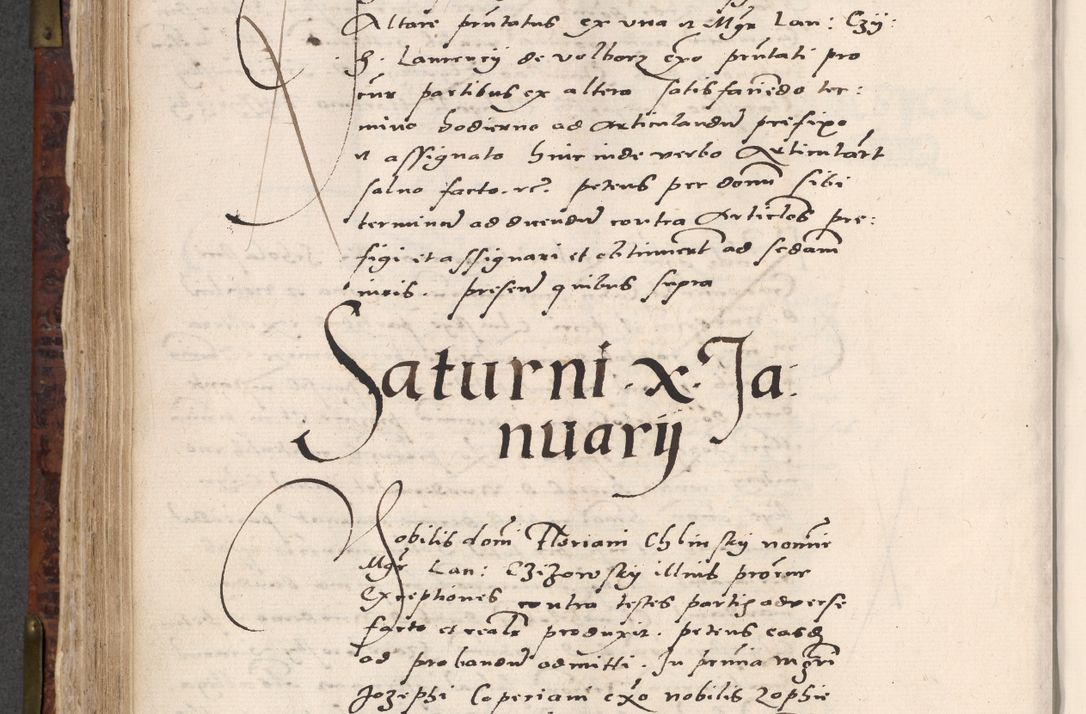 Altare prntatus ex vna et Mgr Lan: Czy:
H. Laurencij de volborz exo prntati pro
cur partibus ex altera satisfaciendo ter:
mino hodierno ad Articulandum prefixo
et assignato hincinde verbo Articularunt
saluo facto. rc. petens per domi sibi
terminum ad ducendum contra Articlos pre:
figi et assignari et obtinuerunt ad sedam
iuris. presen quibus supra
Saturni . x. Ja:
nuarij
Nobilis domi Floriani Chlinskij nomine
Mgr Lan: Czizowskij illius procur
Exceptiones contra testes partis adverse
facto et realr produxit. petens easdem
ad probandum admitti. In prnia mgri
Jozephi Coperiani exo nobilis Zophie